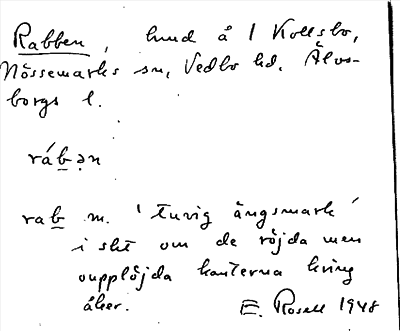 Rabben, hmd å 1 Kollsbo,
Nössemarks sn, Vedbo hd. Älvs-
borgs l.
rábən
rab m. 'tuvig ängsmark'
i sht om de röjda men
ouppløjda kanterna kring
åker. E. Rosell 1948